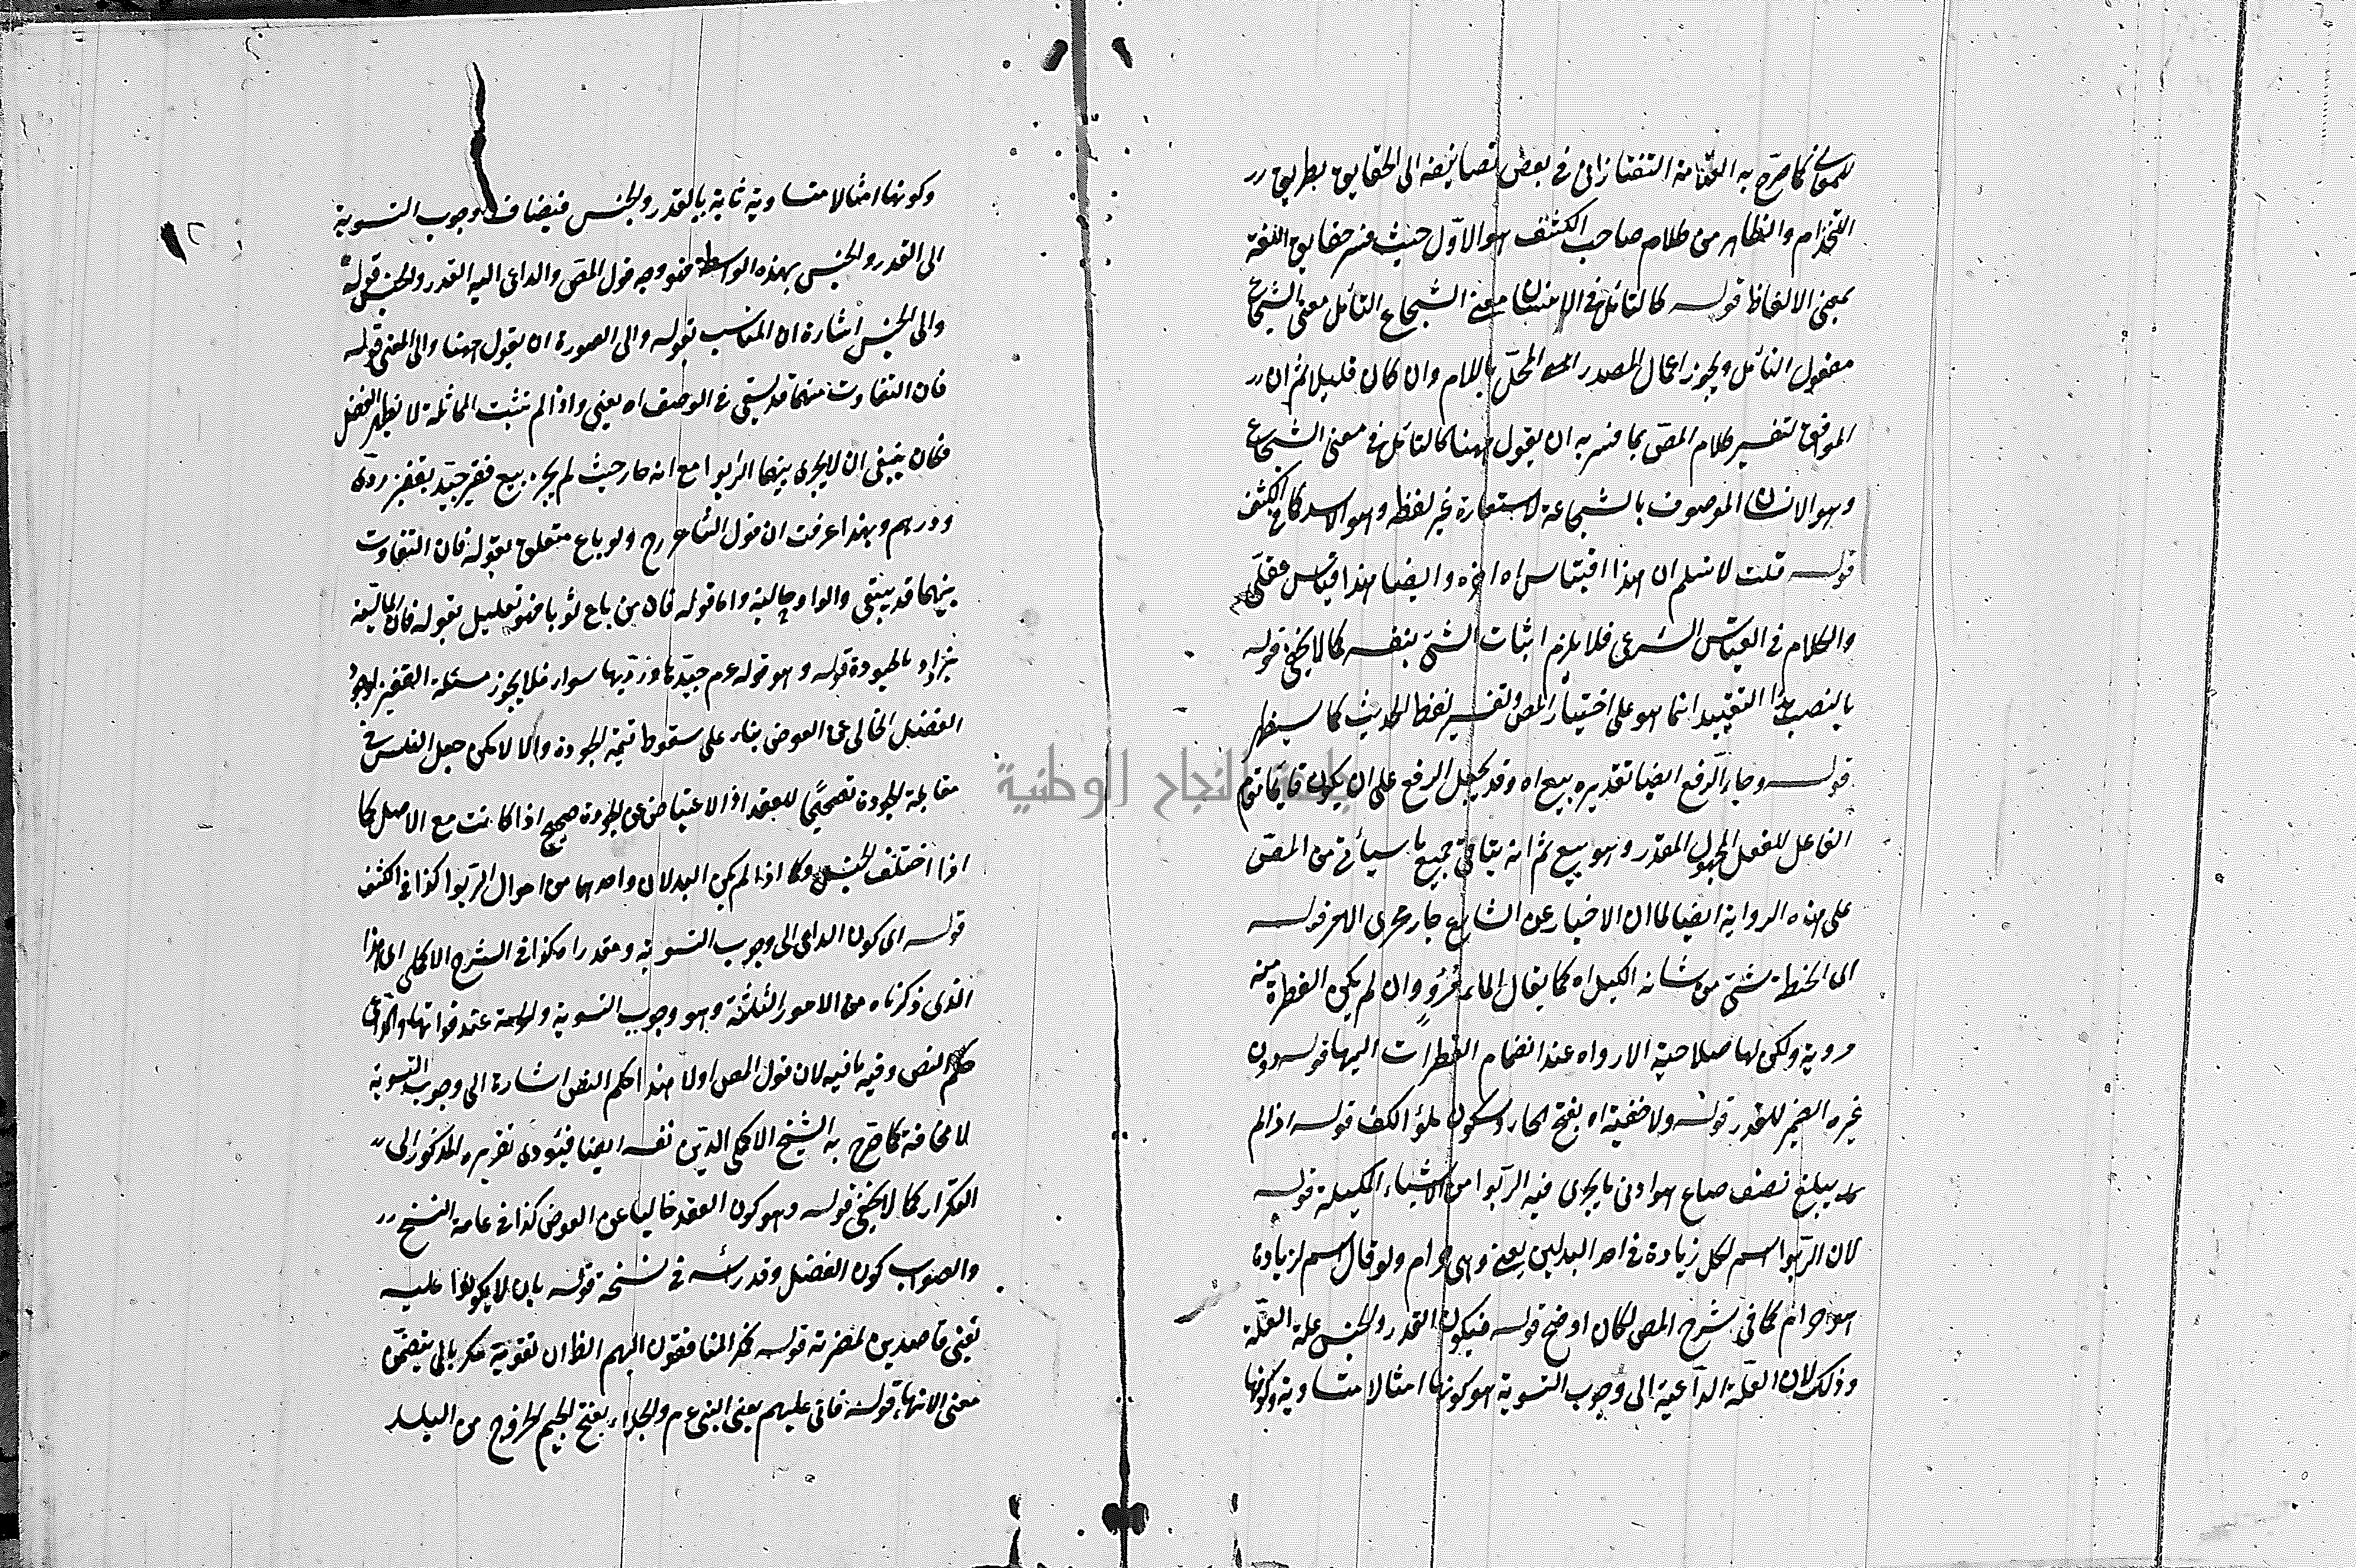 للمعاني كما صرّح به العلّامة التفتازانى فى بعض تصانيفه الى الحقايق بطريق
والظاهر من كلام صاحب الكشف هو الاوّل حيث فسر حقايق اللغة
بمعنى الالفاظ قوله كالتأمّل فى معنى الشجاع التأمل معنى الشجاع
مفعول التأمل ويجوز اعمال المصدر المحلّى باللام وان كان قليلا ثم ان
الموافق لتفسير كلام المصّ بما فسر به ان يقول ههنا كالتأمّل فى معنى الشجاع
وهو الانسان الموصوف بالشجاعة لاستعارة غير لفظه وهو الاسد كما فى الكشف
قوله قلت لا نسلم ان هذا اقتباس اه وايضا هذا قياس عقلى
والكلام فى القياس الشرعى فلا يلزم اثبات الشئ بنفسه كما لا يخفى قوله
بالنصب هذا التقييد انما هو على اختيار المص وتفسير لفظ الحديث كما سيظهر
قوله وجاء الرفع ايضا تقديره بيع اه وقد يجعل الرفع على ان يكون قايما مقام
الفاعل للفعل المجهول المقدر وهو بيع ثم انه يتأتى جميع ما سيأتى من المصّ
على هذه الرواية ايضا لما ان الاخبار عن الشارع جار مجرى الامر قوله
الى الحنطة شئ من شانه الكيل اه كما يقال الماء مُروٍ وان لم يكن القطرة منه
مروية ولكن لها صلاحية الارواء عند انضمام القطرات اليها قوله دون
غيره الضمير للقدر قوله ولا حفنة اه بفتح الحاء وسكون ملؤ الكف قوله اذا لم
يبلغ نصف صاع هو ادنى ما يجرى فيه الربوا من الاشياء المكيلة قوله
لان الربوا اسم لكل زيادة فى احد البدلين يعنى وهى حرام ولو قال اسم لزيادة
هو حرام كما فى شرح المص لكان اوضح قوله فيكون القدر والجنس علة العلّة
وذلك لان العلّة الداعية الى وجوب التسوية هو كونها امثالا متساوية وكونها
وكونها امثالا متساوية ثابتة بالقدر والجنس فيضاف وجوب التسوية
الى القدر والجنس بهذه الواسطة فهو وجه قول المصّ والداعى اليه القدر والجنس قوله
والى الجنس اشارة ان المناسب بقوله والى الصورة ان يقول ههنا والى المعنى قوله
فان التفاوت بينهما قد يبقى فى الوصف اه يعنى واذا لم تثبت المماثلة لا يظهر الفضل
فكان ينبغى ان لا يجرى بينهما الربوا مع انه جار حيث لم يجز بيع قفيز جيّد بقفيز ردى
ودرهم وبهذا عرفت ان قول الشارح ولو باع متعلق بقوله فان التفاوت
بينهما قد يبقى والواو حالية واما قوله فان من باع ثوبا فهو تعليل بقوله فان المالية
تزداد بالجودة قوله وهو قوله عم جيّدها ورديها سواء فلا يجوز مسئلة القفيز لوجود
الفضل الخالى عن العوض بناء على سقوط قيمة الجودة والا لامكن جعل الفلس فى
مقابلة الجودة تصحيحًا للعقد اذ الاعتياض عن الجودة صحيح اذا كانت مع الاصل كما
اذا اختلف الجنس وكما اذا لم يكن البدلان واحدهما من اموال الربوا كذا فى الكشف
قوله اى كون الداعى الى وجوب التسوية ومقدرا هكذا فى الشرح الاكملى اى هذا
الذى ذكرناه من الامور الثلثة وهو وجوب التسوية والحرمة عند فواتها والداعى
حكم النص وفيه ما فيه لان قول المص اولا هذا حكم النص اشارة الى وجوب التسوية
لا محافة كما صرّح به الشيخ الاكمل الدين نفسه ايضا فيؤدى تقريره المذكور الى
التكرار كما لا يخفى قوله وهو كون العقد خاليا عن العوض كذا فى عامة النسخ
والصواب كون الفضل وقد رأيته فى نسخة قوله بان لا يكونوا عليه
يعنى قاصدين لمضرته قوله فمكر المنافقون اليهم الظ ان تعدية مكر بالى بتضمن
معنى الانهاء قوله فاتى عليهم يعنى النبى عم والجلاء بفتح الجيم الخروج من البلد
جامعة النجاح الوطنية